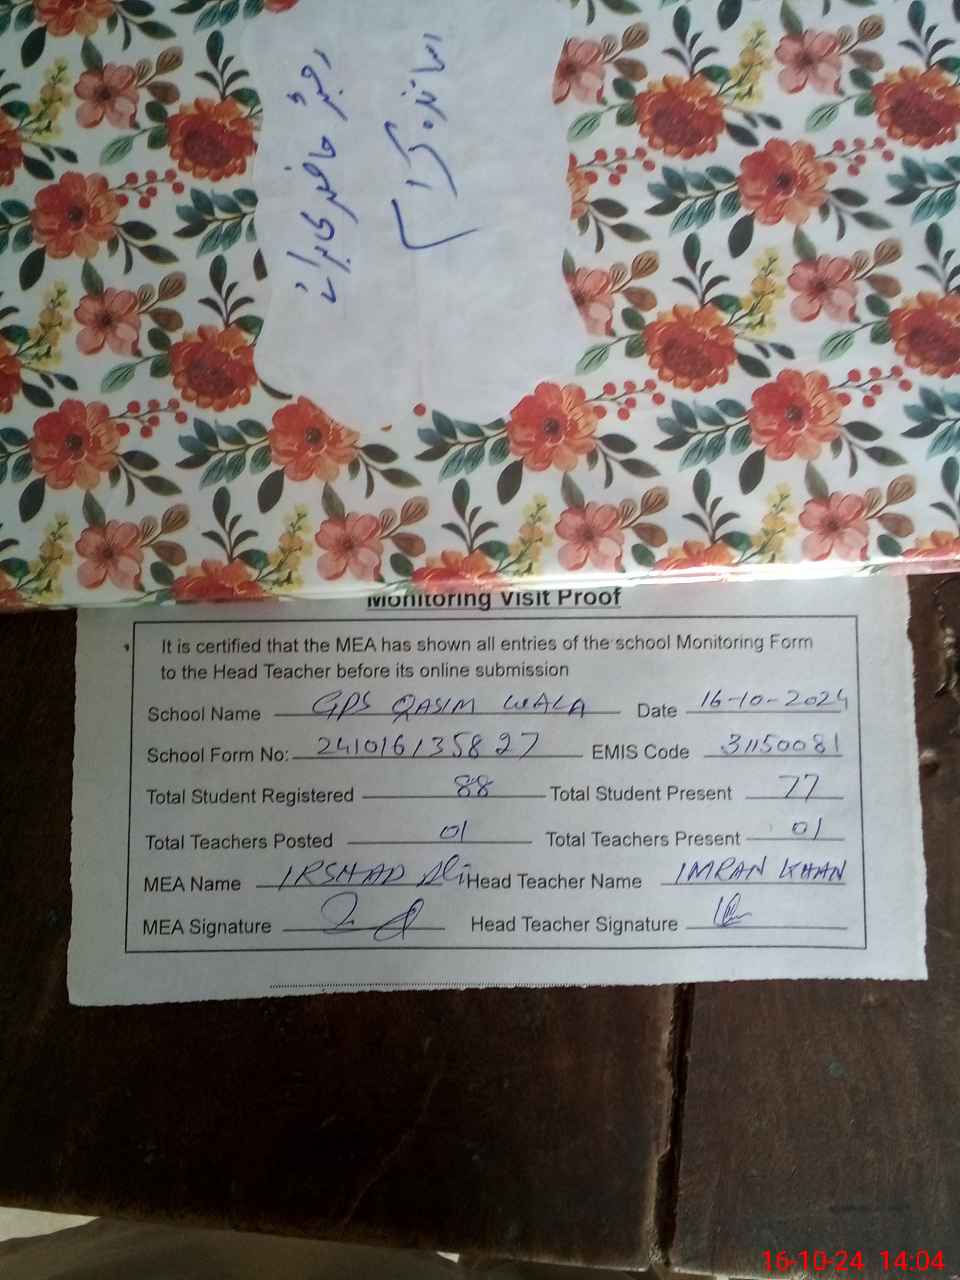 رجسٹر حاضری برائے
اساتذہ کرام
Monitoring Visit Proof
It is certified that the MEA has shown all entries of the school Monitoring Form
to the Head Teacher before its online submission
School Name GPS QASIM WALA Date 16-10-2024
School Form No: 241016135827 EMIS Code 31150081
Total Student Registered 88 Total Student Present 77
Total Teachers Posted 01 Total Teachers Present 01
MEA Name IRSHAD Ali Head Teacher Name IMRAN KHAN
MEA Signature Head Teacher Signature
16-10-24 14:04